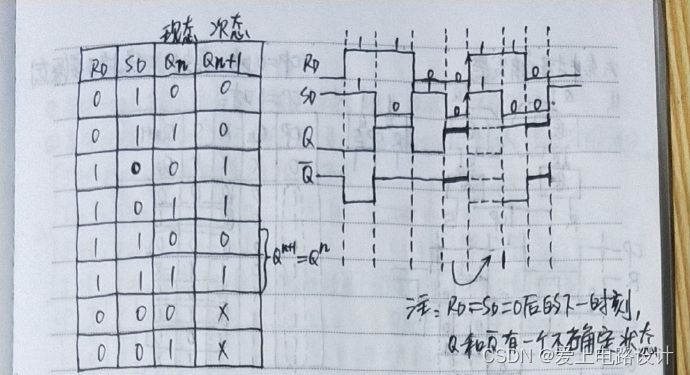 现态 次态
RD SD Qn Qn+1
0 1 0 0
0 1 1 0
1 0 0 1
1 0 1 1
1 1 0 0
1 1 1 1
0 0 0 X
0 0 1 X
Qⁿ⁺¹=Qⁿ
RD 1 1 0 0 1 1 0
SD 1 0 1 0 1 0 0
Q
Q̅
1
注: RD=SD=0后的下一时刻,
Q和Q̅有一个不确定状态
CSDN @爱上电路设计